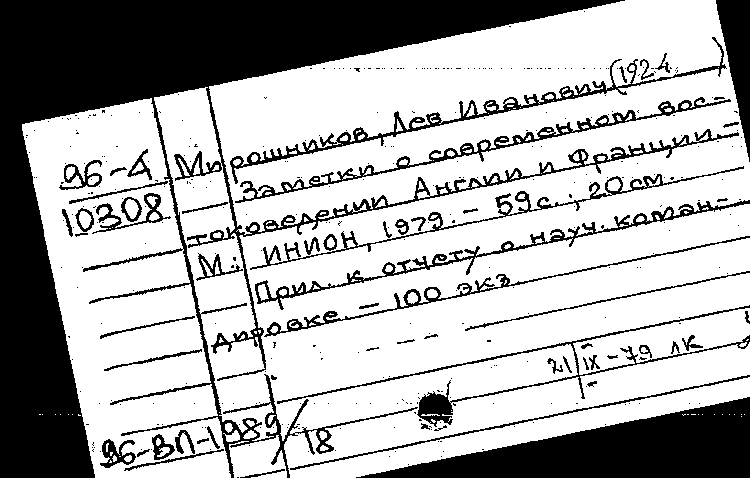 96-4 Мирошников, Лев Иванович (1924 )
10308 Заметки о современном вос-
токоведении Англии и Франции. =
М.: ИНИОН, 1979. - 59 с. ; 20 см.
Прил. к отчету о науч. коман-
дировке. - 100 экз
21/IX-79 ЛК
96-ВП-1989/18